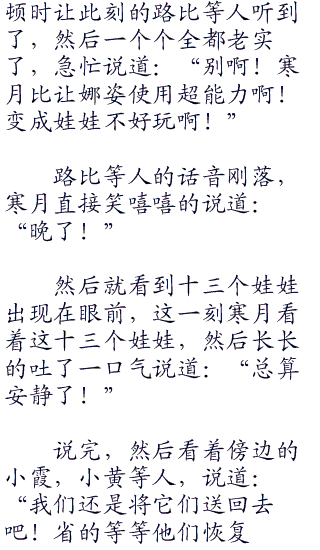 顿时让此刻的路比等人听到
了，然后一个个全都老实
了，急忙说道：“别啊！寒
月比让娜姿使用超能力啊！
变成娃娃不好玩啊！”
路比等人的话音刚落，
寒月直接笑嘻嘻的说道：
“晚了！”
然后就看到十三个娃娃
出现在眼前，这一刻寒月看
着这十三个娃娃，然后长长
的吐了一口气说道：“总算
安静了！”
说完，然后看着傍边的
小霞，小黄等人，说道：
“我们还是将它们送回去
吧！省的等等他们恢复